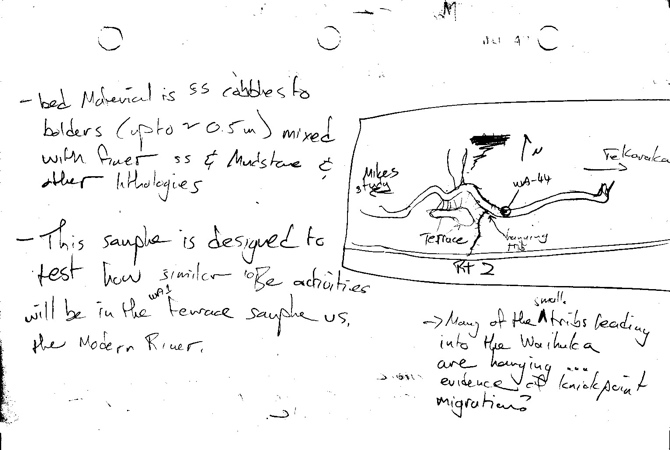 - bed Material is ss cobbles to
bolders (up to ~ 0.5 m) mixed
with finer ss & Mudstone &
other lithologies
- This sample is designed to
test how similar 10Be activities
will be in the WA1 terrace sample vs.
the Modern River.
N
Te Karaka
Mikes
study
WA-44
Terrace
hanging
trib
Rt 2
→ Many of the small tribs leading
into the Waihuka
are hanging ...
evidence of knickpoint
migration?